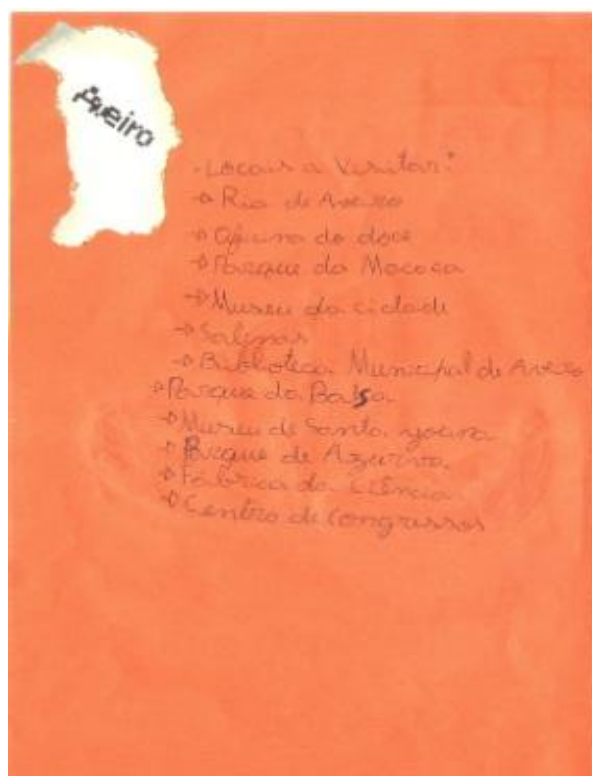 Aveiro
- Locais a Visitar:
→ Ria de Aveiro
→ Oficina do doce
→ Parque da Macaca
→ Museu da cidade
→ Salinas
→ Biblioteca Municipal de Aveiro
→ Parque da Balsa
→ Museu de Santa Joana
→ Parque de Azurva
→ Fábrica da Ciência
→ Centro de Congressos